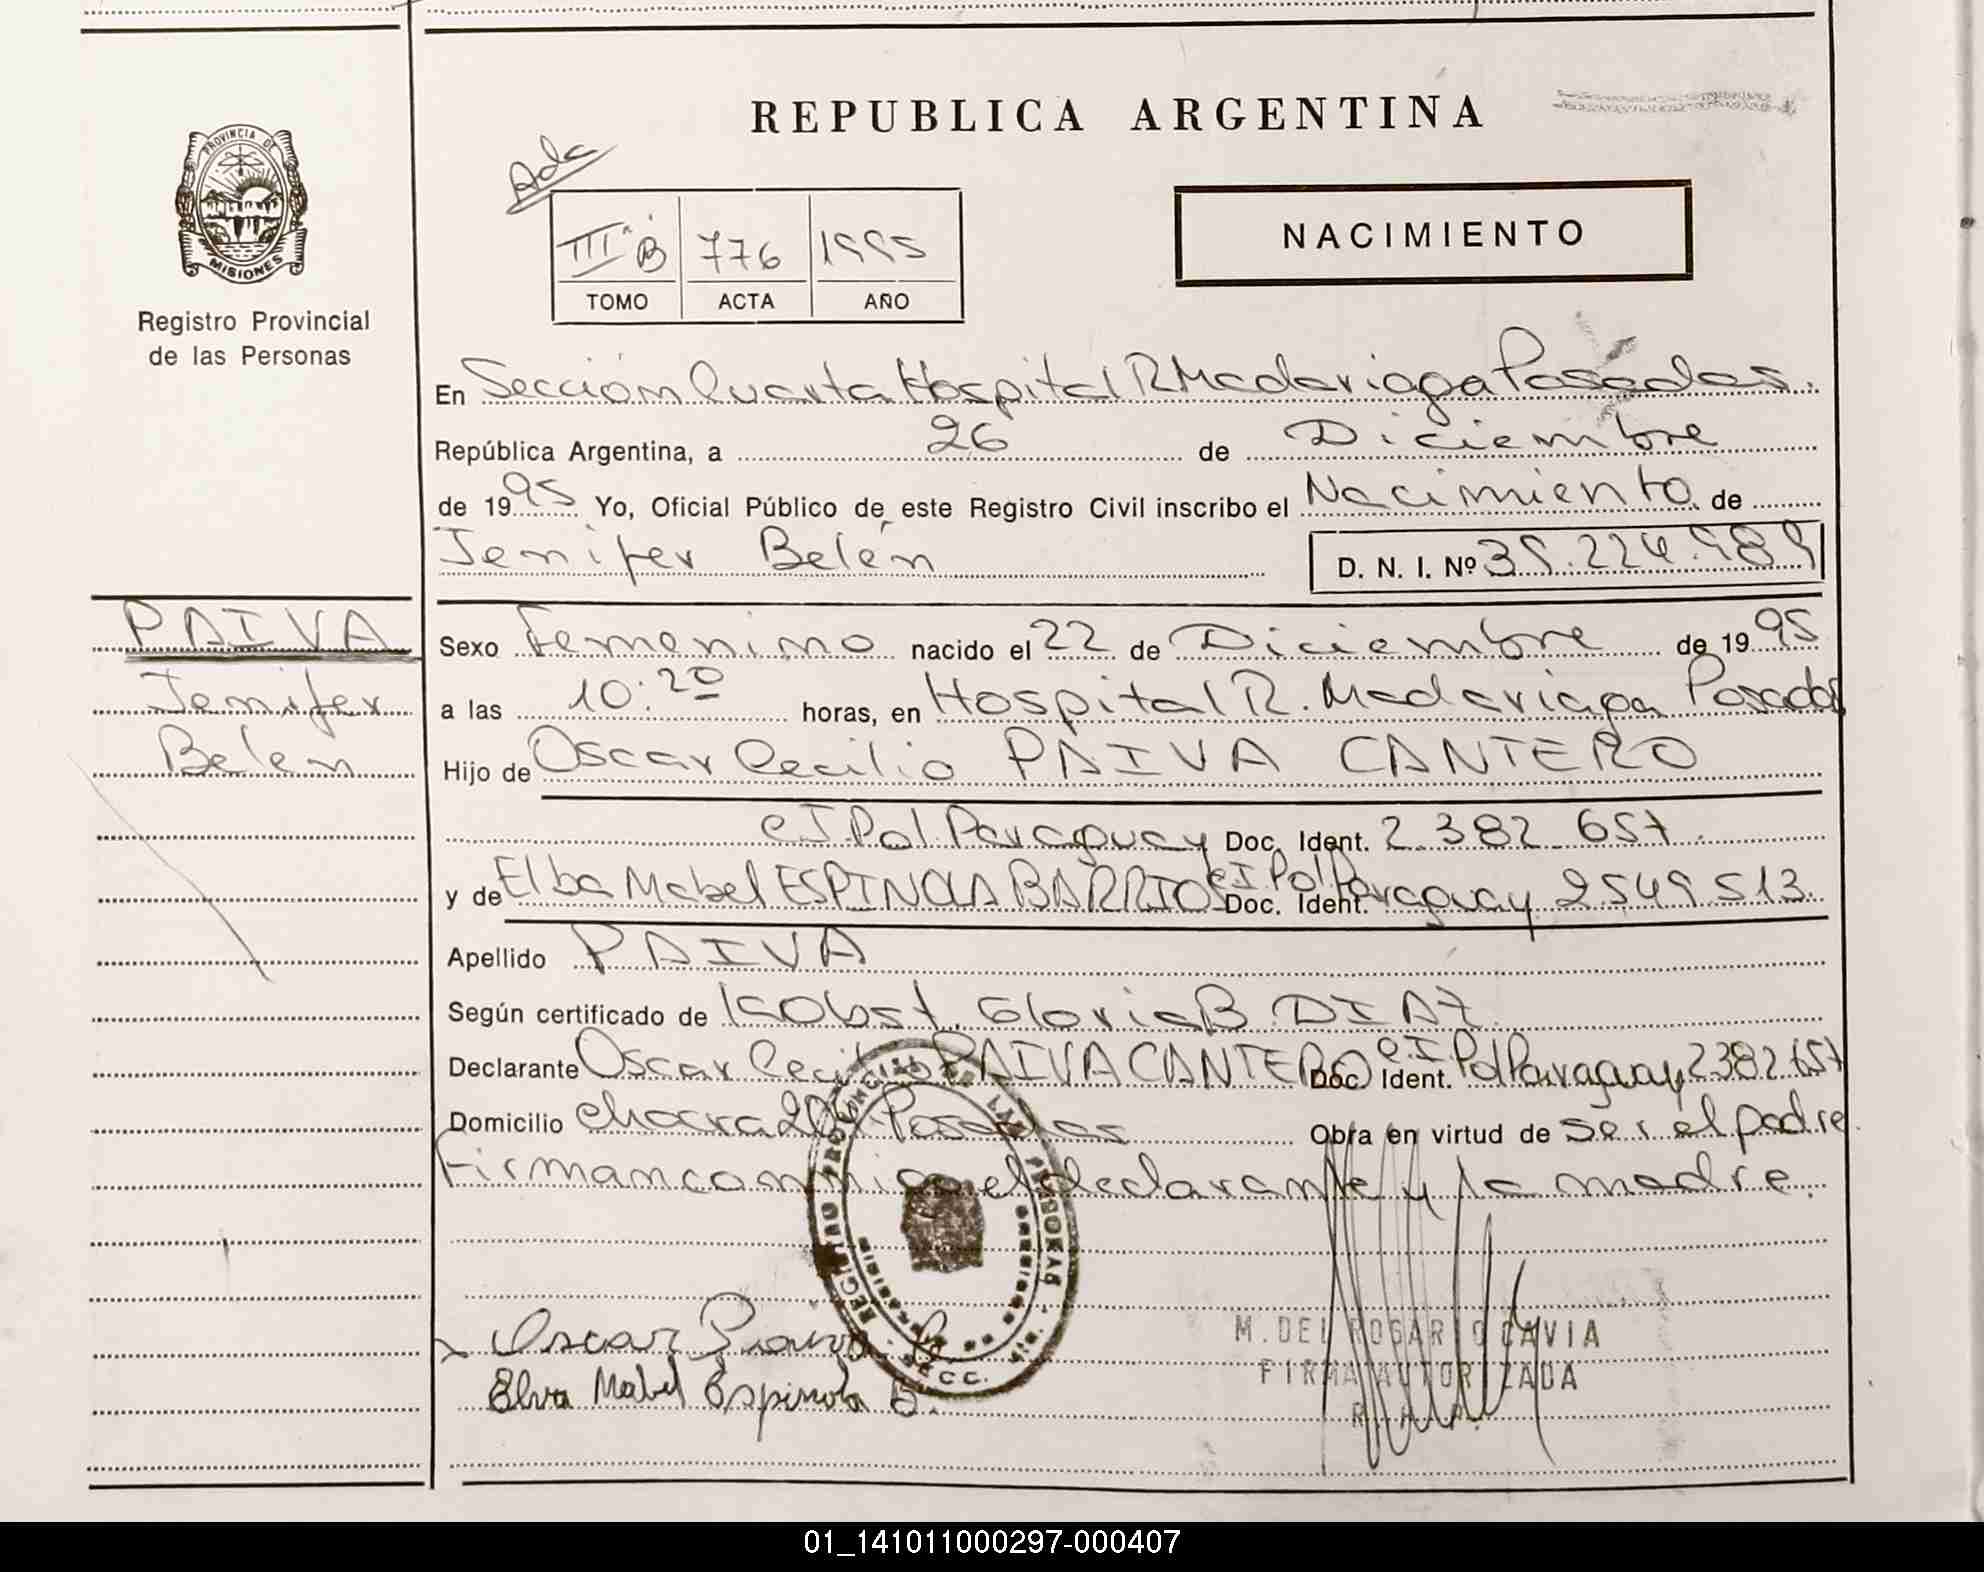 REPUBLICA ARGENTINA
PROVINCIA DE
MISIONES
Registro Provincial
de las Personas
Adc
IIIº B 776 1995
TOMO ACTA AÑO
NACIMIENTO
En Sección Cuarta Hospital R Madariaga Posadas.
República Argentina, a 26 de Diciembre
de 1995 Yo, Oficial Público de este Registro Civil inscribo el Nacimiento de
Jenifer Belén D. N. I. Nº 39.224.989
PAIVA
Jenifer
Belen
Sexo Femenino nacido el 22 de Diciembre de 1995
a las 10:20 horas, en Hospital R. Madariaga Posadas
Hijo de Oscar Cecilio PAIVA CANTERO
C.I.Pol.Paraguay Doc. Ident. 2.382.657.
y de Elba Mabel ESPINOLA BARRIOS C.I.Pol Doc. Ident. Paraguay 2549513.
Apellido PAIVA
Según certificado de Gloria B. DIAZ
Declarante Oscar Cecilio PAIVA CANTERO Doc. Ident. C.I.Pol Paraguay 2382657
Domicilio Chacra Posadas Obra en virtud de ser el padre.
Firman conmigo el declarante y la madre.
REGISTRO PROVINCIAL DE LAS PERSONAS
Oscar Paiva C
Elva Mabel Espinola B.
C.C.
M. DEL ROSARIO CAVIA
FIRMA AUTORIZADA
01_141011000297-000407